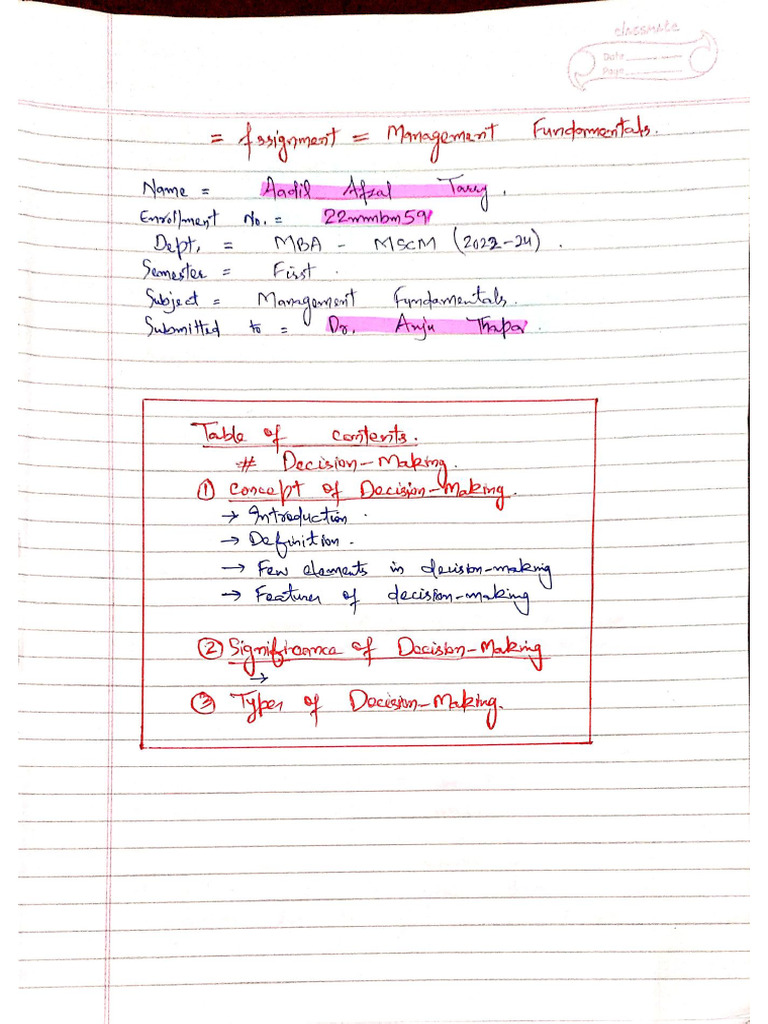 classmate
Date
Page
= Assignment = Management Fundamentals.
Name = Aadil Afzal Tarry.
Enrollment No. = 22mmbm59
Dept. = MBA - MSCM (2022-24).
Semester = First.
Subject = Management Fundamentals.
Submitted to = Dr. Anju Thapa.
Table of contents.
# Decision-Making.
① Concept of Decision-Making.
→ Introduction.
→ Definition.
→ Few elements in decision-making
→ Features of decision-making
② Significance of Decision-Making
→
③ Types of Decision-Making.